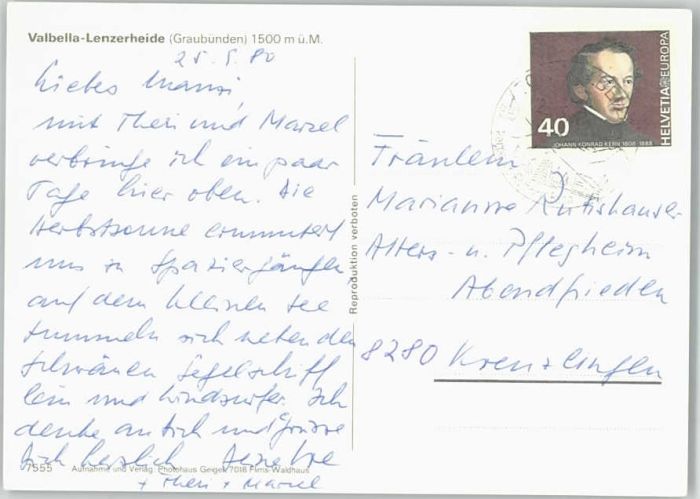 Valbella-Lenzerheide (Graubünden) 1500 m ü.M.
25. 9. 80
Liebes Manni,
mit Theri und Marzel
verbringe ich ein paar
Tage hier oben. Die
Herbstsonne ermuntert
uns zu Spaziergängen,
auf dem kleinen See
tummeln sich neben den
Schwänen Segelschiff
lein und Windsurfer. Ich
denke an Dich und grüsse
Dich herzlich
+ Theri + Marzel
7555 Aufnahme und Verlag: Photohaus Geiger, 7018 Flims-Waldhaus
Reproduktion verboten
40
JOHANN KONRAD KERN 1808-1888
HELVETIA EUROPA
Fräulein
Marianne Rutishauser
Alters- u. Pflegheim
Abendfrieden
8280 Kreuzlingen